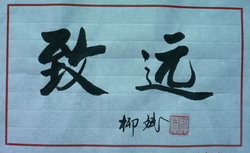 致远
柳斌